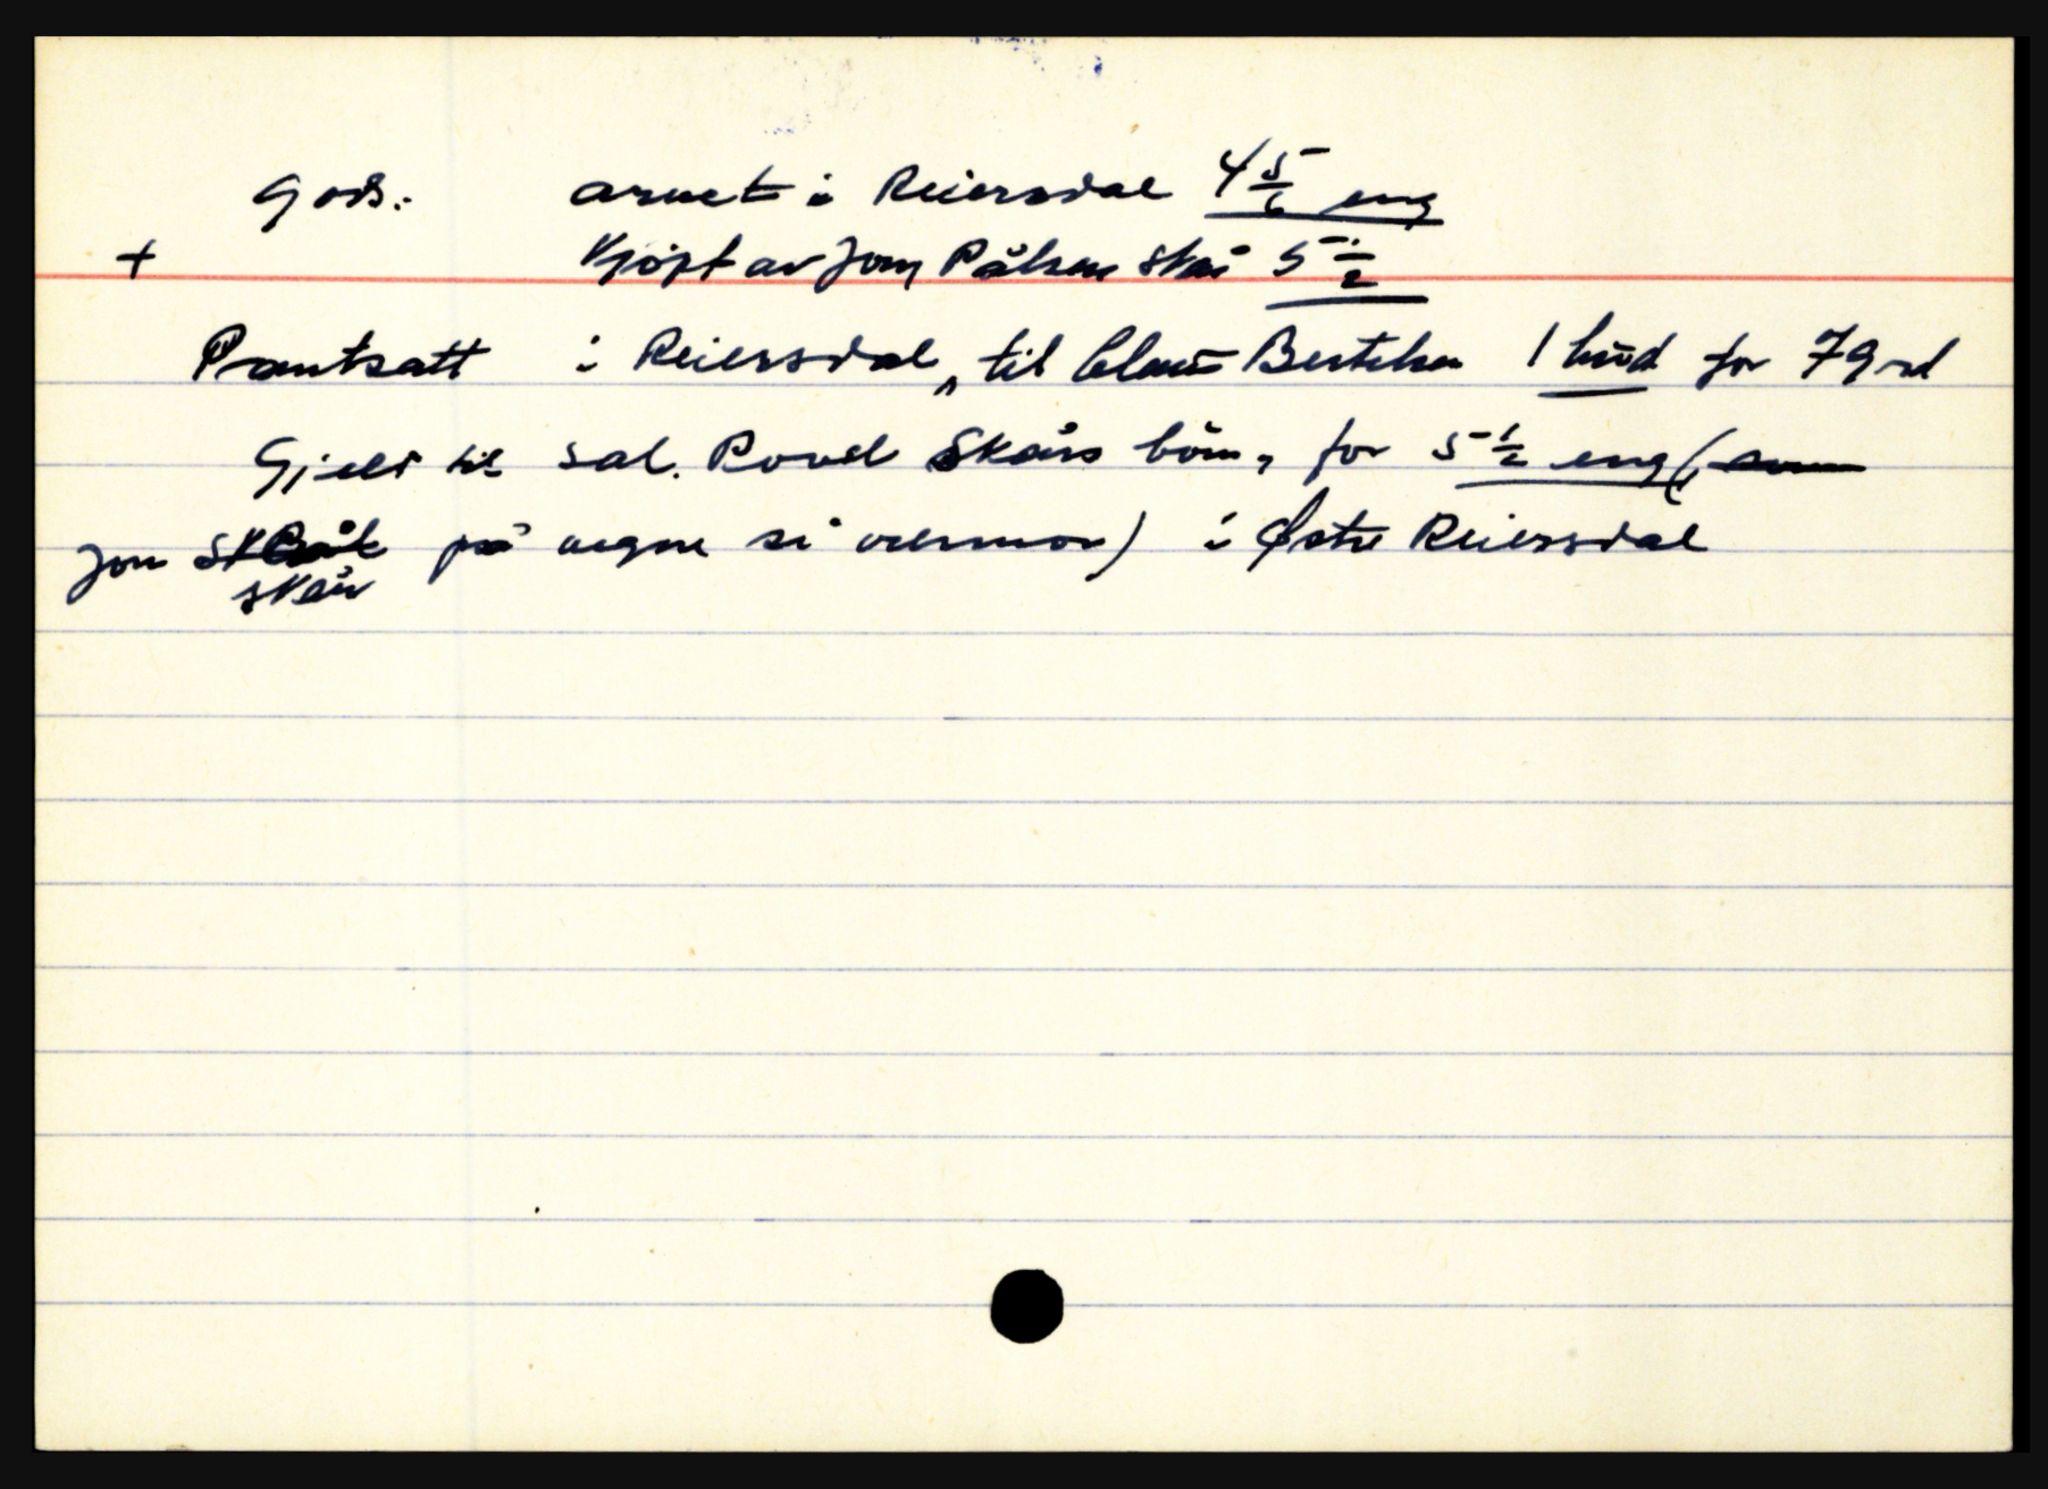 Gods: arvet i Reiersdal 4 5/6 eng
+ Kjöpt av Jon Pålsen Skår 5 1/2
Pantsatt i Reiersdal, til Claus Bertelsen 1 hud for 79 rd
Gjeld til sal. Povel Skårs börn, for 5 1/2 eng (
Jon på vegne si vermor) i Østre Reiersdal
Skår